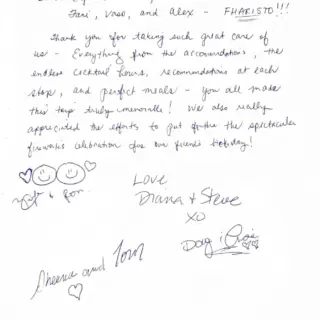 Fari, Vaso, and Alex - FHARISTO!!!
Thank you for taking such great care of
us - Everything from the accomodations, the
endless cocktail hours, recomendations at each
stop, and perfect meals - you all made
this trip truly memorable! We also really
appreciated the efforts to put forth the spectacular
fireworks celebration for our friend's birthday!
Love
Diana + Steve
XO
Sheena and Tom